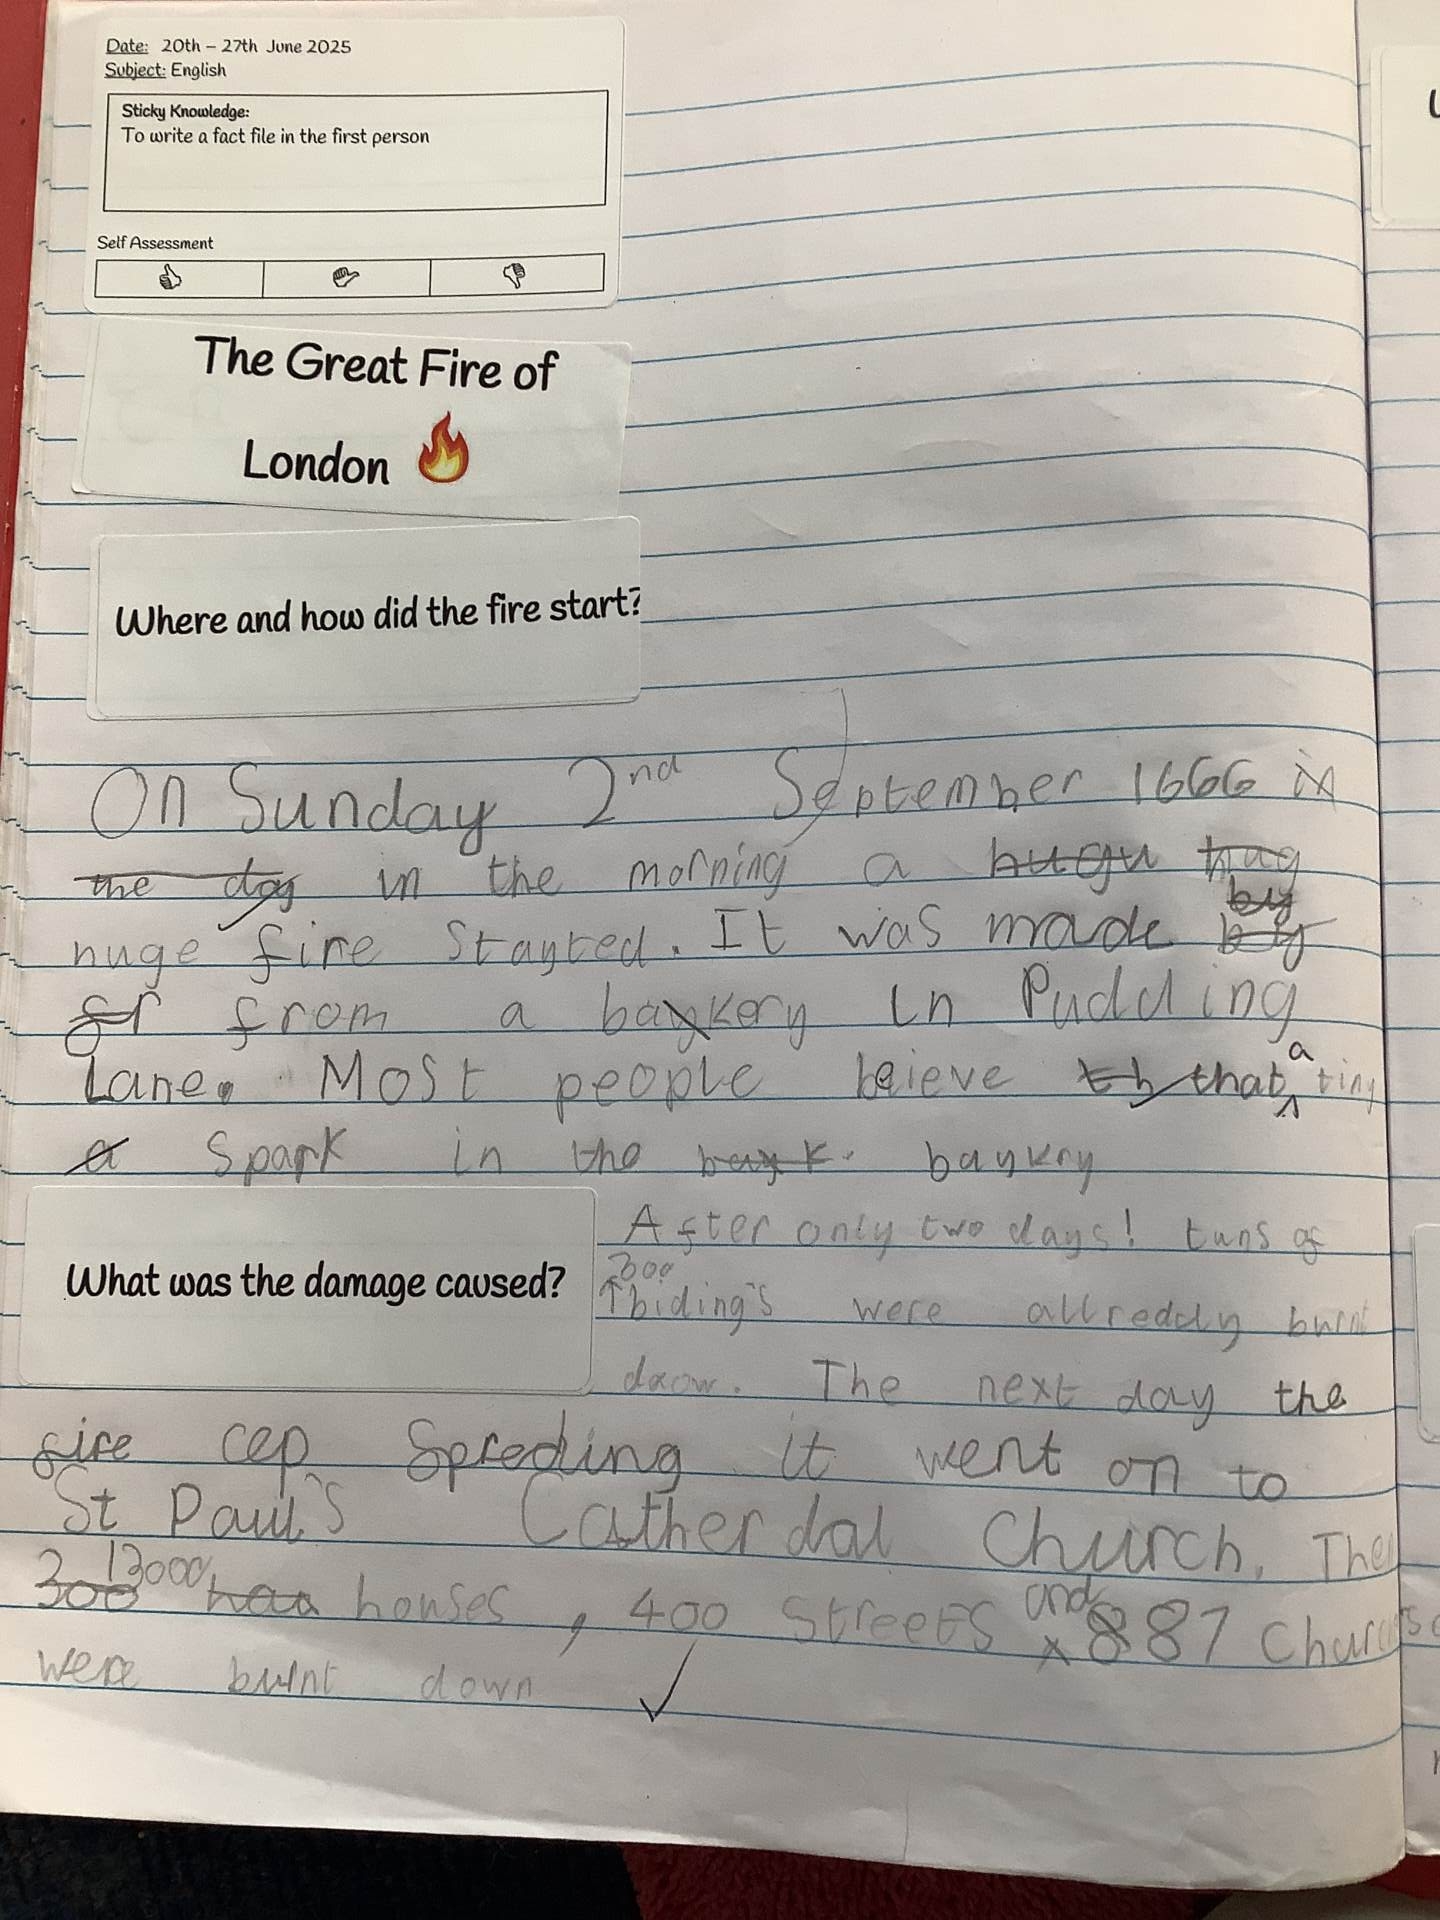 Date: 20th – 27th June 2025
Subject: English
Sticky Knowledge:
To write a fact file in the first person
Self Assessment
The Great Fire of
London 🔥
Where and how did the fire start?
On Sunday 2nd September 1666 in
the day in the morning a hugu hug
huge fire stayted. It was made by by
fr from a baykery in Pudding
Lane. Most people beieve th that a tiny
a spark in the bayk. baykry
What was the damage caused?
After only two days! tuns of
300 biding's were allreddy burnt
daow. The next day the
fire cep Spreding it went on to
St Paul's Catherdal Church. The
300 13000 houses, 400 Streets and 887 Churc
were burnt down